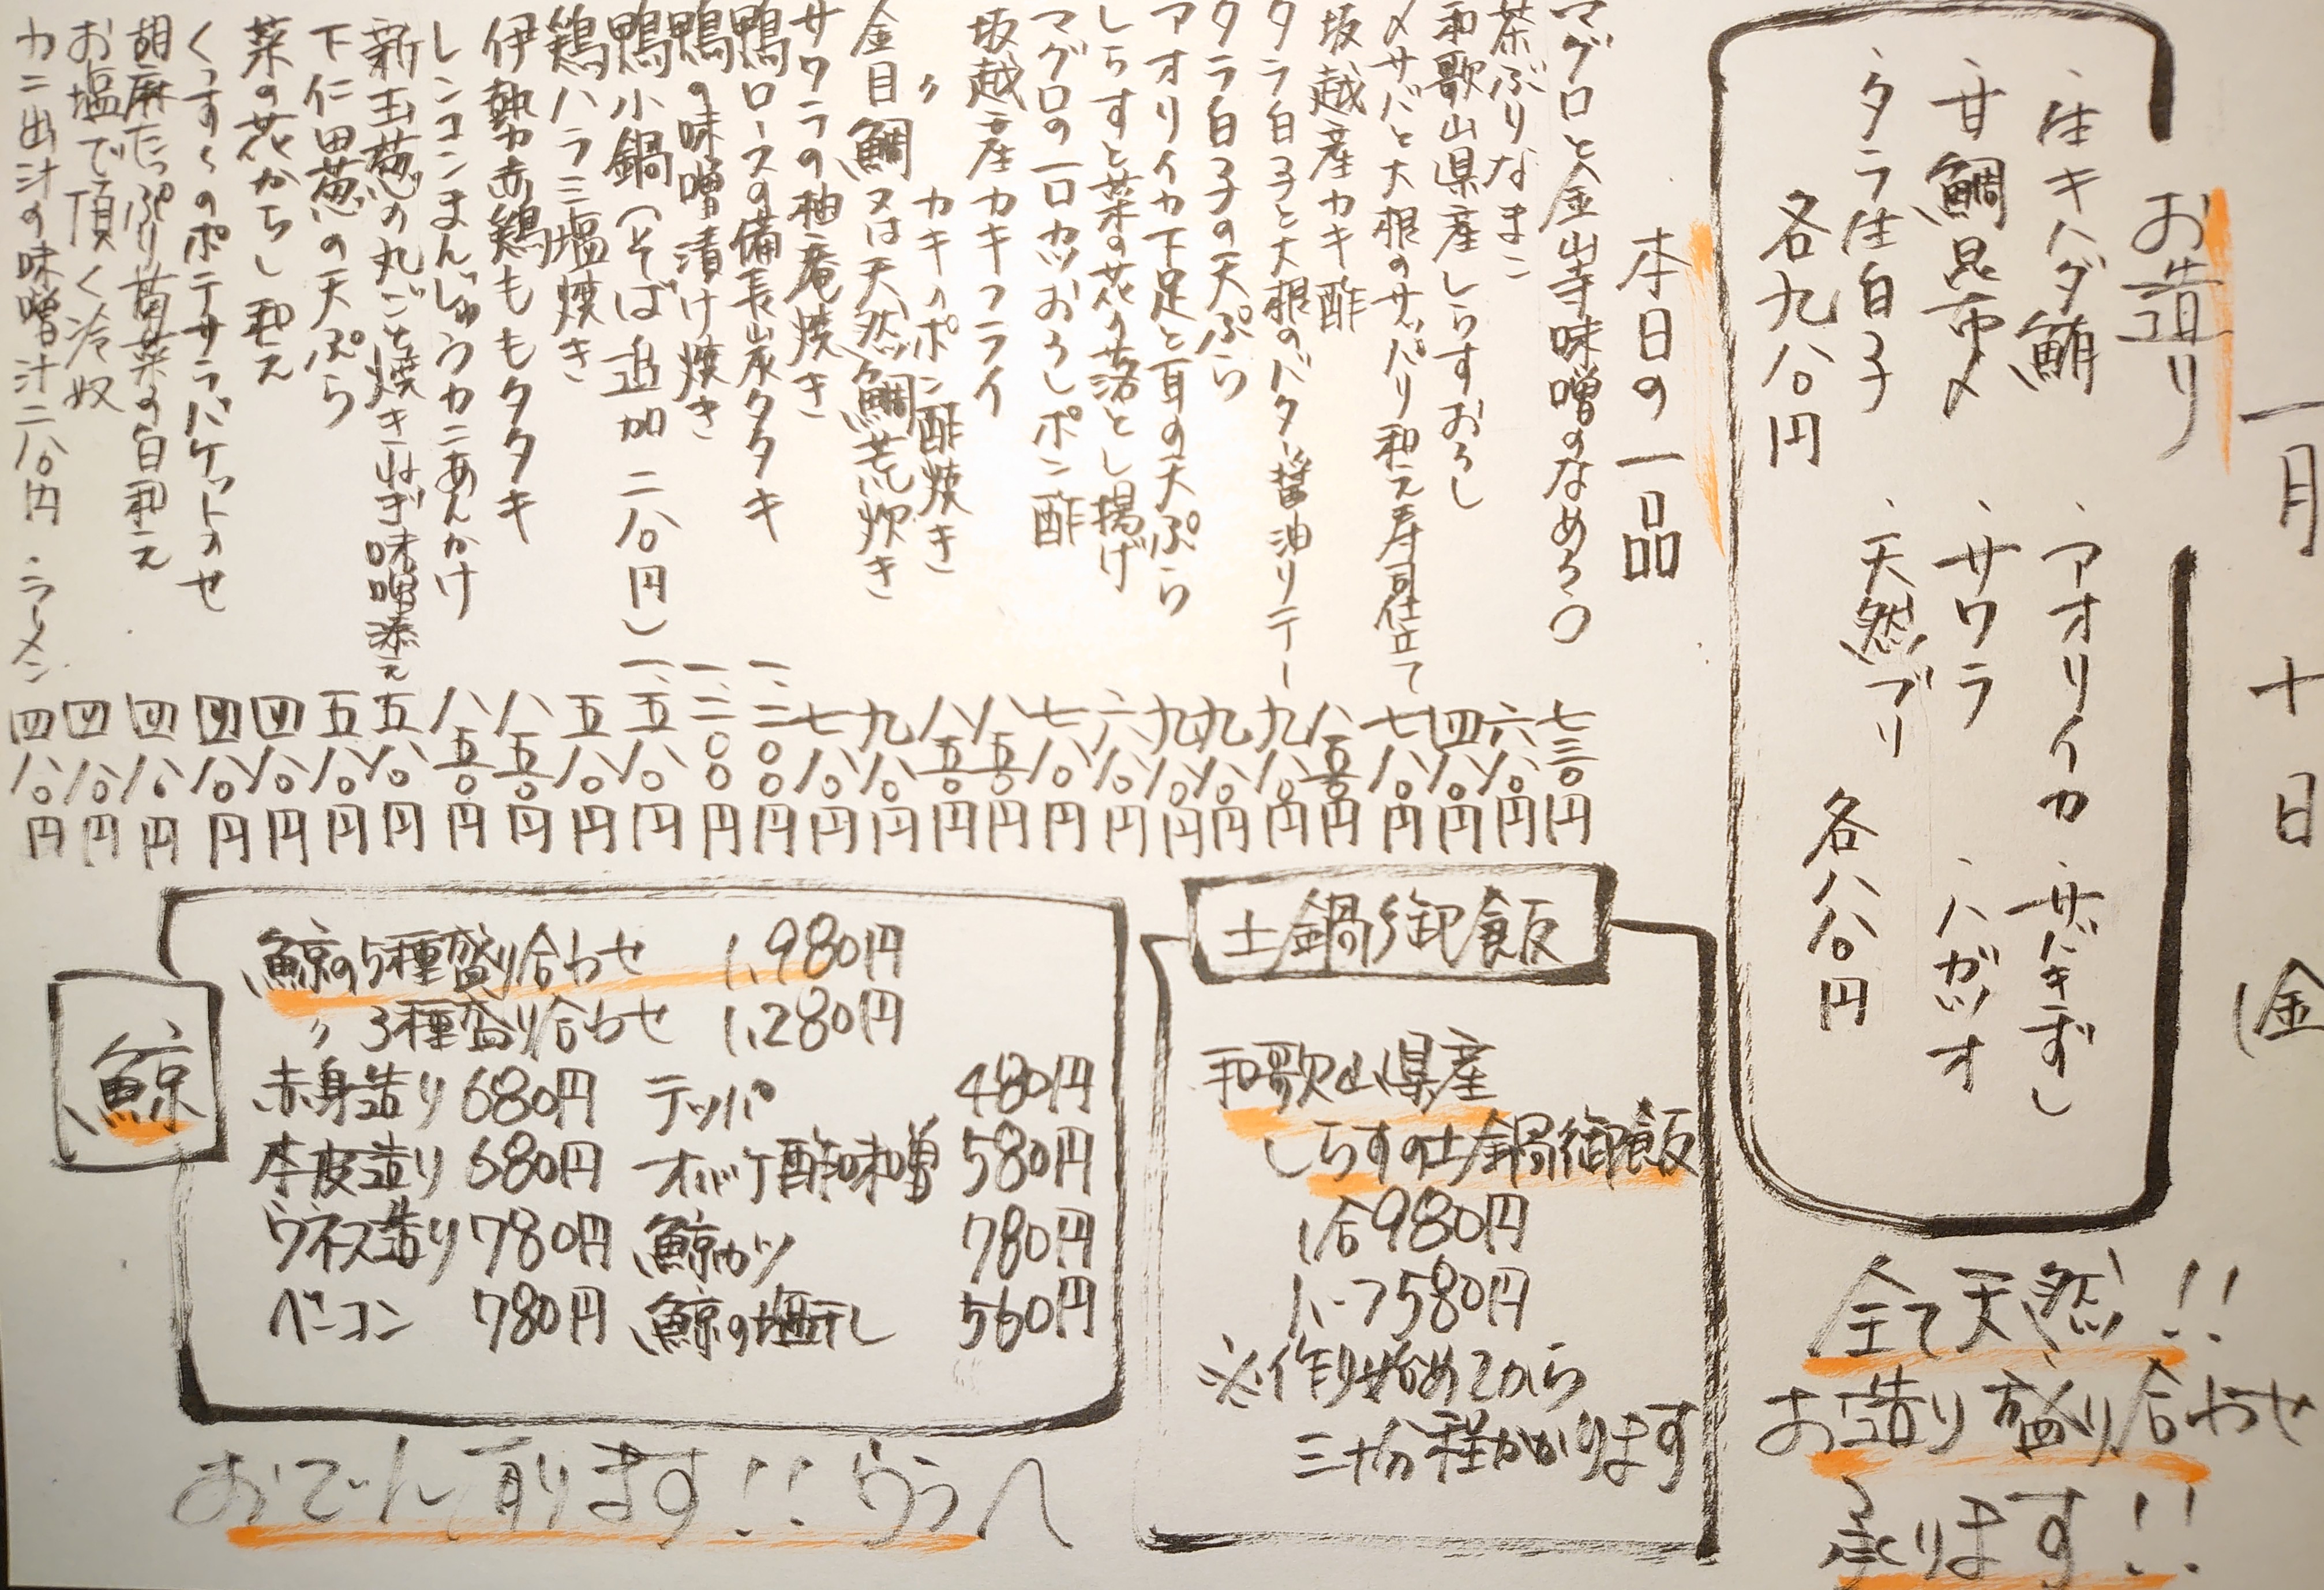 一月十日(金
お造り
・生キハダ鮪
・甘鯛昆布〆
・タラ生白子
各九八〇円
・アオリイカ
・サバきずし
・サワラ
・ハガツオ
・天然ブリ
各八八〇円
全て天然!!
お造り盛り合わせ
承ります!!
本日の一品
マグロと金山寺味噌のなめろう 七三〇円
茶ぶりなまこ 六八〇円
和歌山県産しらすおろし 四八〇円
〆サバと大根のサッパリ和え寿司仕立て 七八〇円
坂越産カキ酢 八五〇円
タラ白子と大根のバター醤油ソテー 九八〇円
タラ白子の天ぷら 九八〇円
アオリイカ下足と耳の天ぷら 九八〇円
しらすと菜の花の落とし揚げ 六八〇円
マグロの一口カツおろしポン酢 七八〇円
坂越産カキフライ 八五〇円
〃 カキのポン酢焼き 八五〇円
金目鯛又は天然鯛荒炊き 九八〇円
サワラの柚庵焼き 七八〇円
鴨ロースの備長炭タタキ 一、二〇〇円
鴨の味噌漬け焼き 一、二〇〇円
鴨小鍋(そば追加二八〇円) 一、五八〇円
鶏ハラミ塩焼き 五八〇円
伊勢赤鶏ももタタキ 八五〇円
レンコンまんじゅうカニあんかけ 八五〇円
新玉葱の丸ごと焼きねぎ味噌添え 五八〇円
下仁田葱の天ぷら 五八〇円
菜の花からし和え 四八〇円
くつすくのポテサラバケットのせ 四八〇円
胡麻たっぷり菊菜の白和え 四八〇円
お塩で頂く冷奴 四八〇円
カニ出汁の味噌汁二八〇円 ・ラーメン 四八〇円
土鍋御飯
和歌山県産
しらすの土鍋御飯
1合980円
ハーフ580円
※作り始めてから
三十分程かかります
鯨
鯨の5種盛り合わせ 1,980円
〃 3種盛り合わせ 1,280円
赤身造り 680円 テッパ 480円
本皮造り 680円 オバケ酢味噌 580円
ウネス造り 780円 鯨カツ 780円
ベーコン 780円 鯨の塩干し 560円
おでん有ります!!うらへ